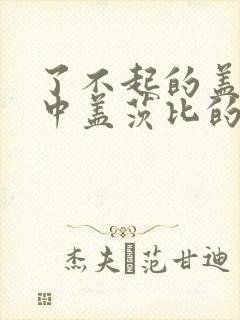 了不起的盖
中盖茨比的
杰夫 范甘迪